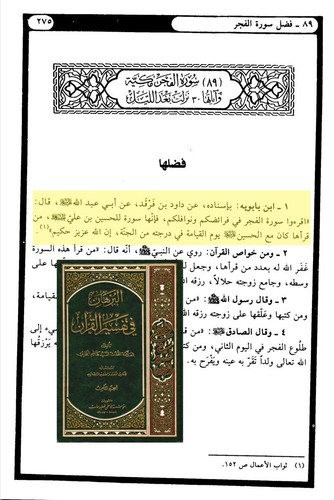 ٨٩ - فضل سورة الفجر
٢٧٥
(٨٩) سُورَة الفَجْرِ مَكِيَّة
وَآيَاتُهَا ٣٠ نزلَت بَعْدَ اللَّيْل
فضلها
١ - ابن بابويه: بإسناده، عن داود بن فَرْقَد، عن أبي عبد الله ﷺ، قال:
«اقرءوا سورة الفجر في فرائضكم ونوافلكم، فإنّها سورة للحسين بن عليّ ﷺ، من
قرأها كان مع الحسين ﷺ يوم القيامة في درجته من الجنّة، إن الله عزيز حكيم»(١)
٢ - ومن خواص القرآن: روي عن النبيّ ﷺ، أنّه قال: «من قرأ هذه السورة
غَفَر الله له بعدد من قرأها، وجعل ل
على
وسطه، وجامع زوجته حلالاً، رزقه الل
٣ - وقال رسول الله ﷺ:
القيامة،
ومن كتبها وعَلَّقها على زوجته رزقه الل
٤ - وقال الصادق ﷺ: «من ق
ي» إلى
طلُوع الفجر في اليوم الثاني، ومن كتب
يَرْزُقها
الله تعالى ولداً تَقَرّ به عينه ويَفْرَح به.
البرهان
في تفسير القرآن
(١) ثواب الأعمال ص ١٥٢.